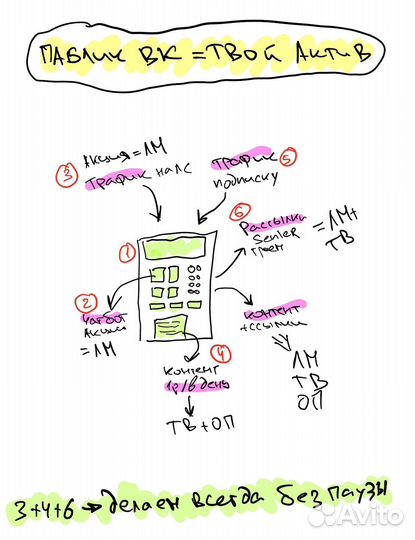 ПАБЛИК ВК = ТВОЙ АКТИВ
АКЦИЯ = ЛМ
3 ТРАФИК НА ЛС
ТРАФИК 5
ПОДПИСКУ
6
РАССЫЛКИ
Senler
= ЛМ+
ТВ
1
2
ЧАТБОТ
АКЦИЯ
= ЛМ
4
КОНТЕНТ
1р/в день
ТВ + ОП
КОНТЕНТ
+ ССЫЛКИ
ЛМ
ТВ
ОП
3+4+6 → делаем всегда без паузы
Avito